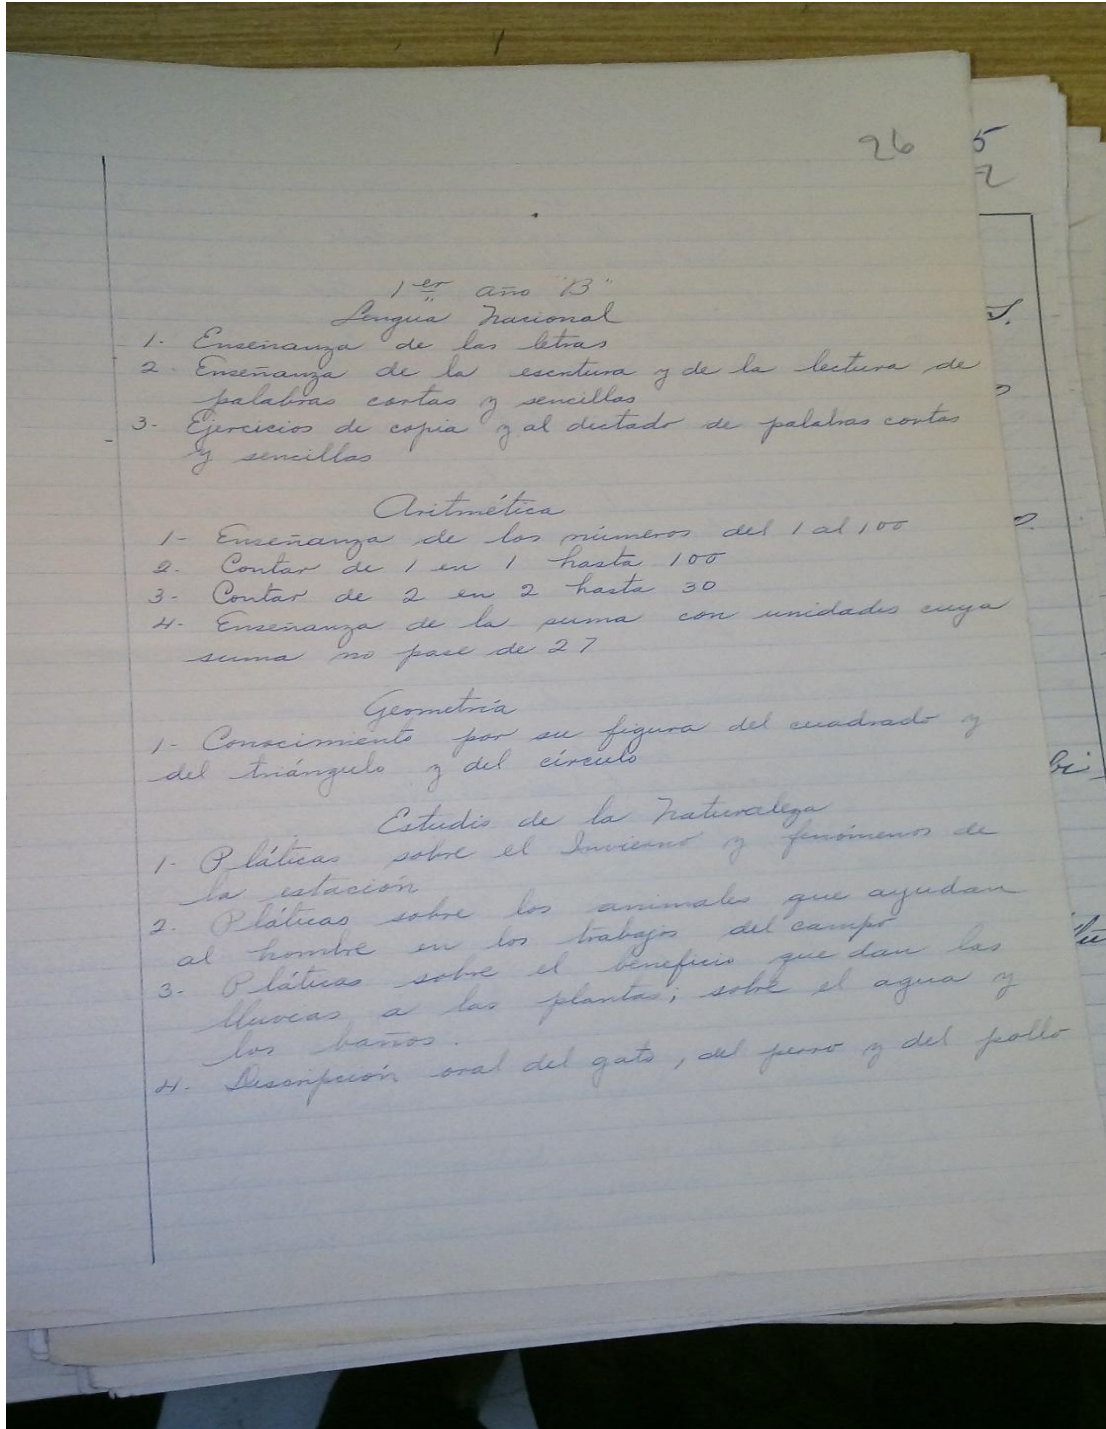 26
5
2
1er año "B"
Lengua Nacional
1. Enseñanza de las letras
2. Enseñanza de la escritura y de la lectura de
palabras cortas y sencillas
3- Ejercicios de copia y al dictado de palabras cortas
y sencillas
Aritmética
1- Enseñanza de los números del 1 al 100
2. Contar de 1 en 1 hasta 100
3- Contar de 2 en 2 hasta 30
4- Enseñanza de la suma con unidades cuya
suma no pase de 27
Geometría
1- Conocimiento por su figura del cuadrado y
del triángulo y del círculo
Estudio de la Naturaleza
1- Pláticas sobre el Invierno y fenómenos de
la estación
2. Pláticas sobre los animales que ayudan
al hombre en los trabajos del campo
3- Pláticas sobre el beneficio que dan las
lluvias a las plantas; sobre el agua y
los baños.
4- Descripción oral del gato, del perro y del pollo